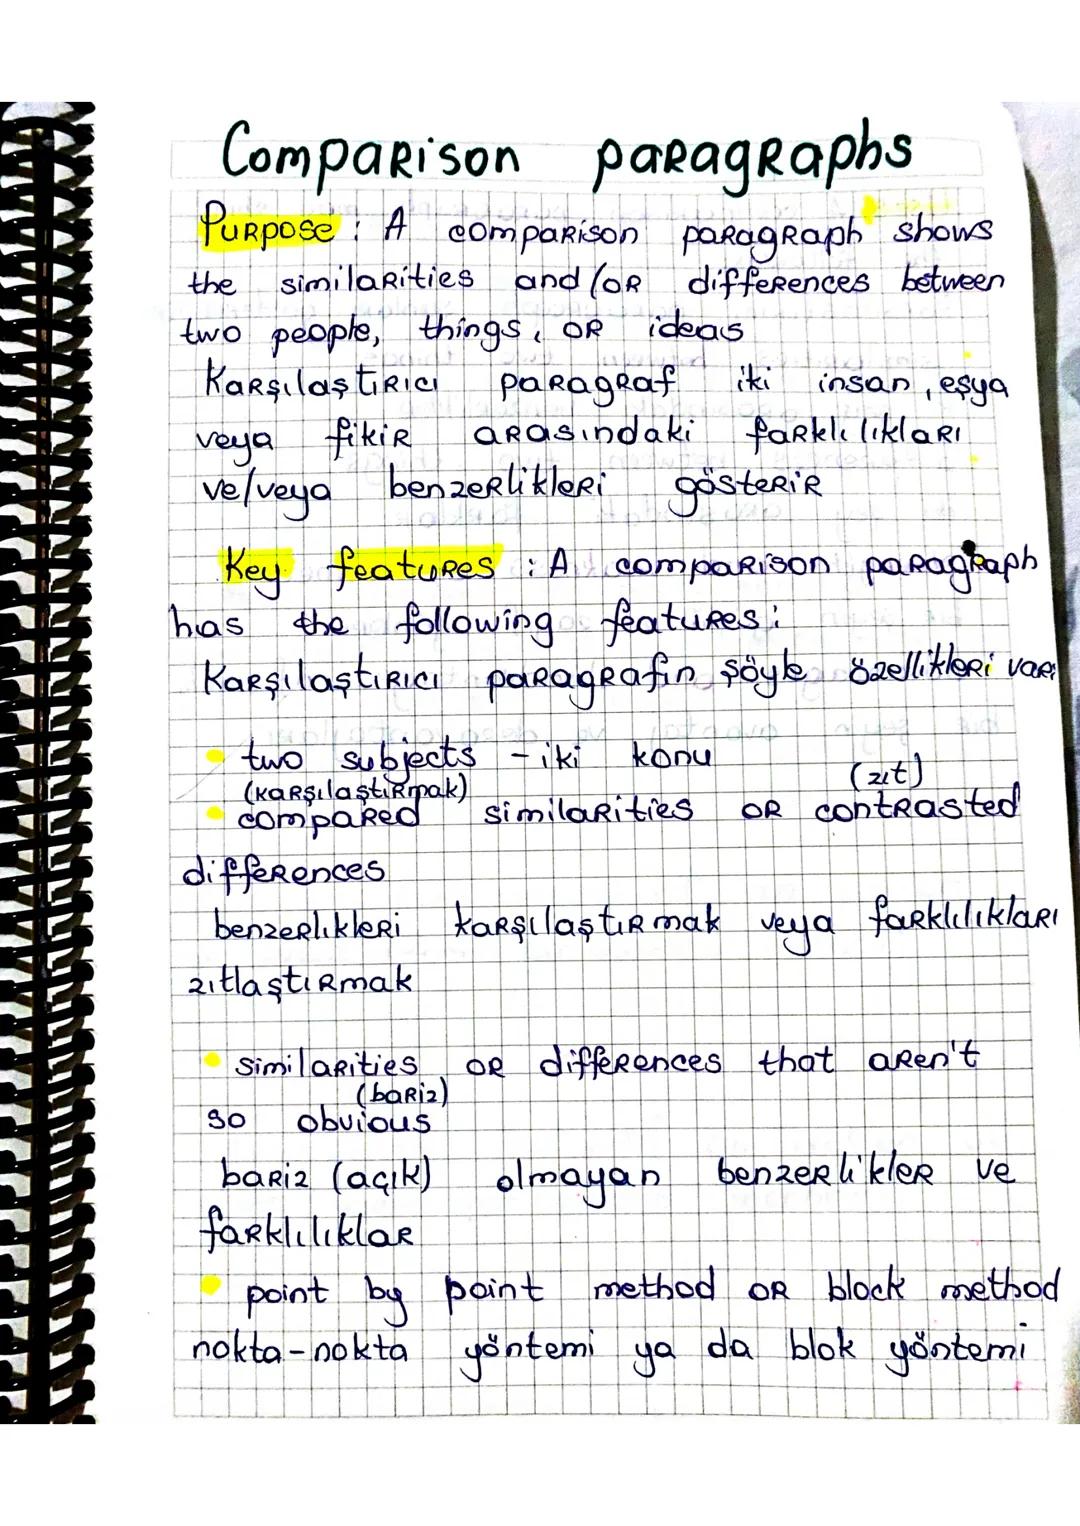 Comparison paragraphs
Purpose : A comparison paragraph shows
the similarities and/or differences between
two people, things, or ideas
Karşılaştırıcı paragraf iki insan, eşya
veya fikir arasındaki farklılıkları
ve/veya benzerlikleri gösterir
Key features : A comparison paragraph
has the following features:
Karşılaştırıcı paragrafın şöyle özellikleri var:
• two subjects - iki konu
(karşılaştırmak) (zıt)
• compared similarities or contrasted
differences
benzerlıkleri karşılaştırmak veya farklılıkları
zıtlaştırmak
• similarities or differences that aren't
(bariz)
so obvious
bariz (açık) olmayan benzerlikler ve
farklılıklar
• point by point method or block method
nokta-nokta yöntemi ya da blok yöntemi